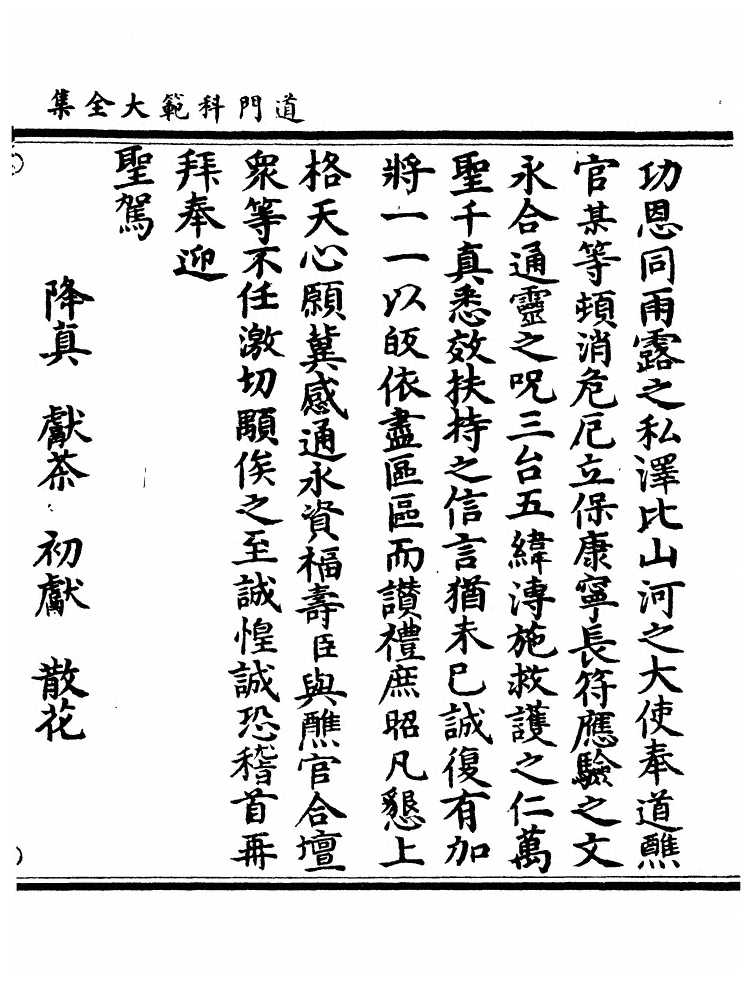 道門科範大全集
功恩同雨露之私澤比山河之大使奉道醮
官某等頓消危厄立保康寧長符應驗之文
永合通靈之呪三台五緯溥施救護之仁萬
聖千真悉效扶持之信言猶未已誠復有加
將一一以皈依盡區區而讚禮庶昭凡懇上
格天心願冀感通永資福壽臣與醮官合壇
衆等不任激切顒俟之至誠惶誠恐稽首再
拜奉迎
聖駕
降真 獻茶 初獻 散花